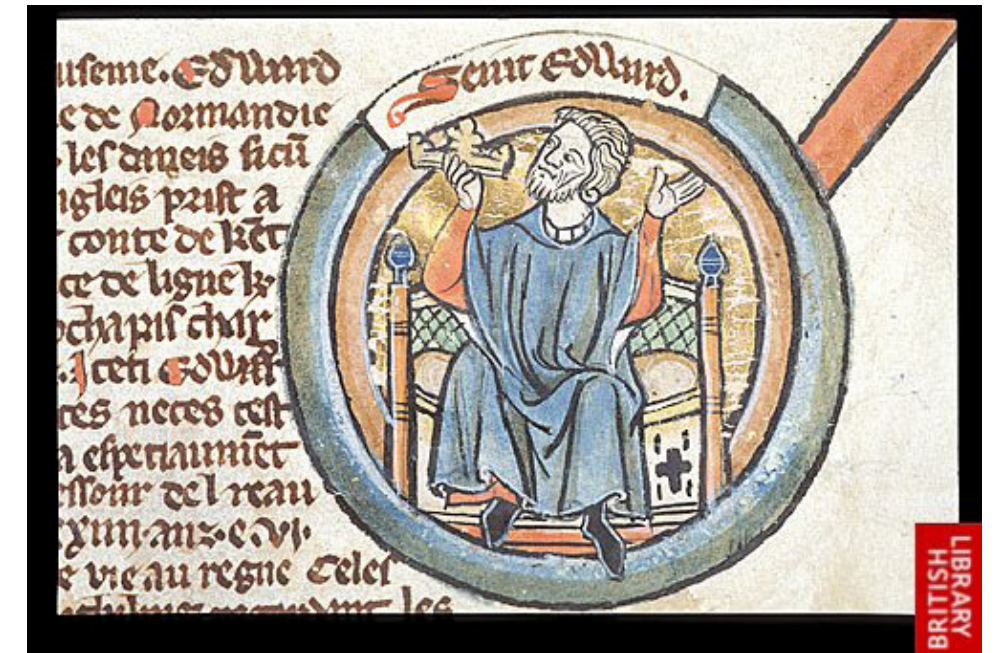 Seint Edward.
useme. Edward
e de Normandie
les daneis sicū
ngleis prist a
conte de kēt
ce de ligne
Iceti
neces cest
a especiaumēt
essour del reau
XXIIII. anz. e. VI.
e vie au regne Celes
les
BRITISH
LIBRARY